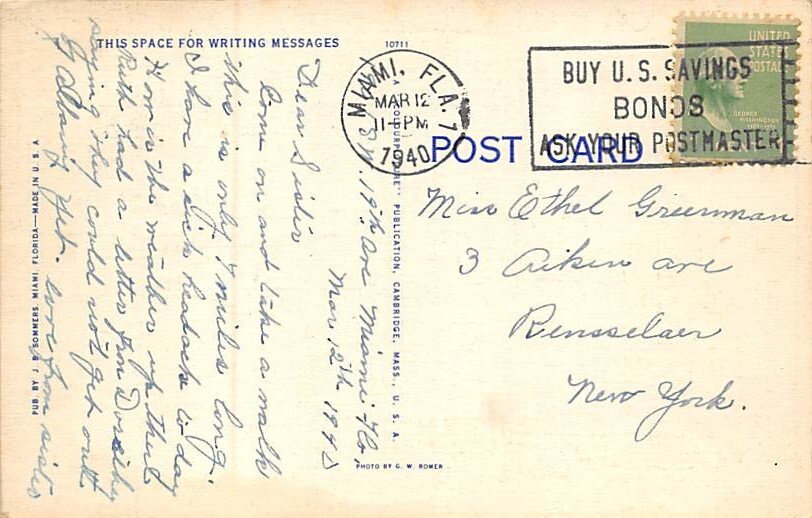 THIS SPACE FOR WRITING MESSAGES
10711
19th Ave Miami Fla,
Mar 12th 1940
Dear Sister
Come on and take a walk
this is only 7 miles long.
I have a sick headach to day
How is the weather up there
Ruth had a letter from Dorothy
saying they could not get out
of Albany yet. love from sister
PUB. BY J. B. SOMMERS, MIAMI, FLORIDA—MADE IN U. S. A.
PUBLICATION, CAMBRIDGE, MASS., U. S. A.
PHOTO BY G. W. ROMER
MIAMI, FLA. 1
MAR 12
11-PM
1940
BUY U.S. SAVINGS
BONDS
ASK YOUR POSTMASTER
UNITED
STATES
POSTAGE
GEORGE
WASHINGTON
POST CARD
Miss Ethel Greenman
3 Aiken ave
Rensselaer
New York.